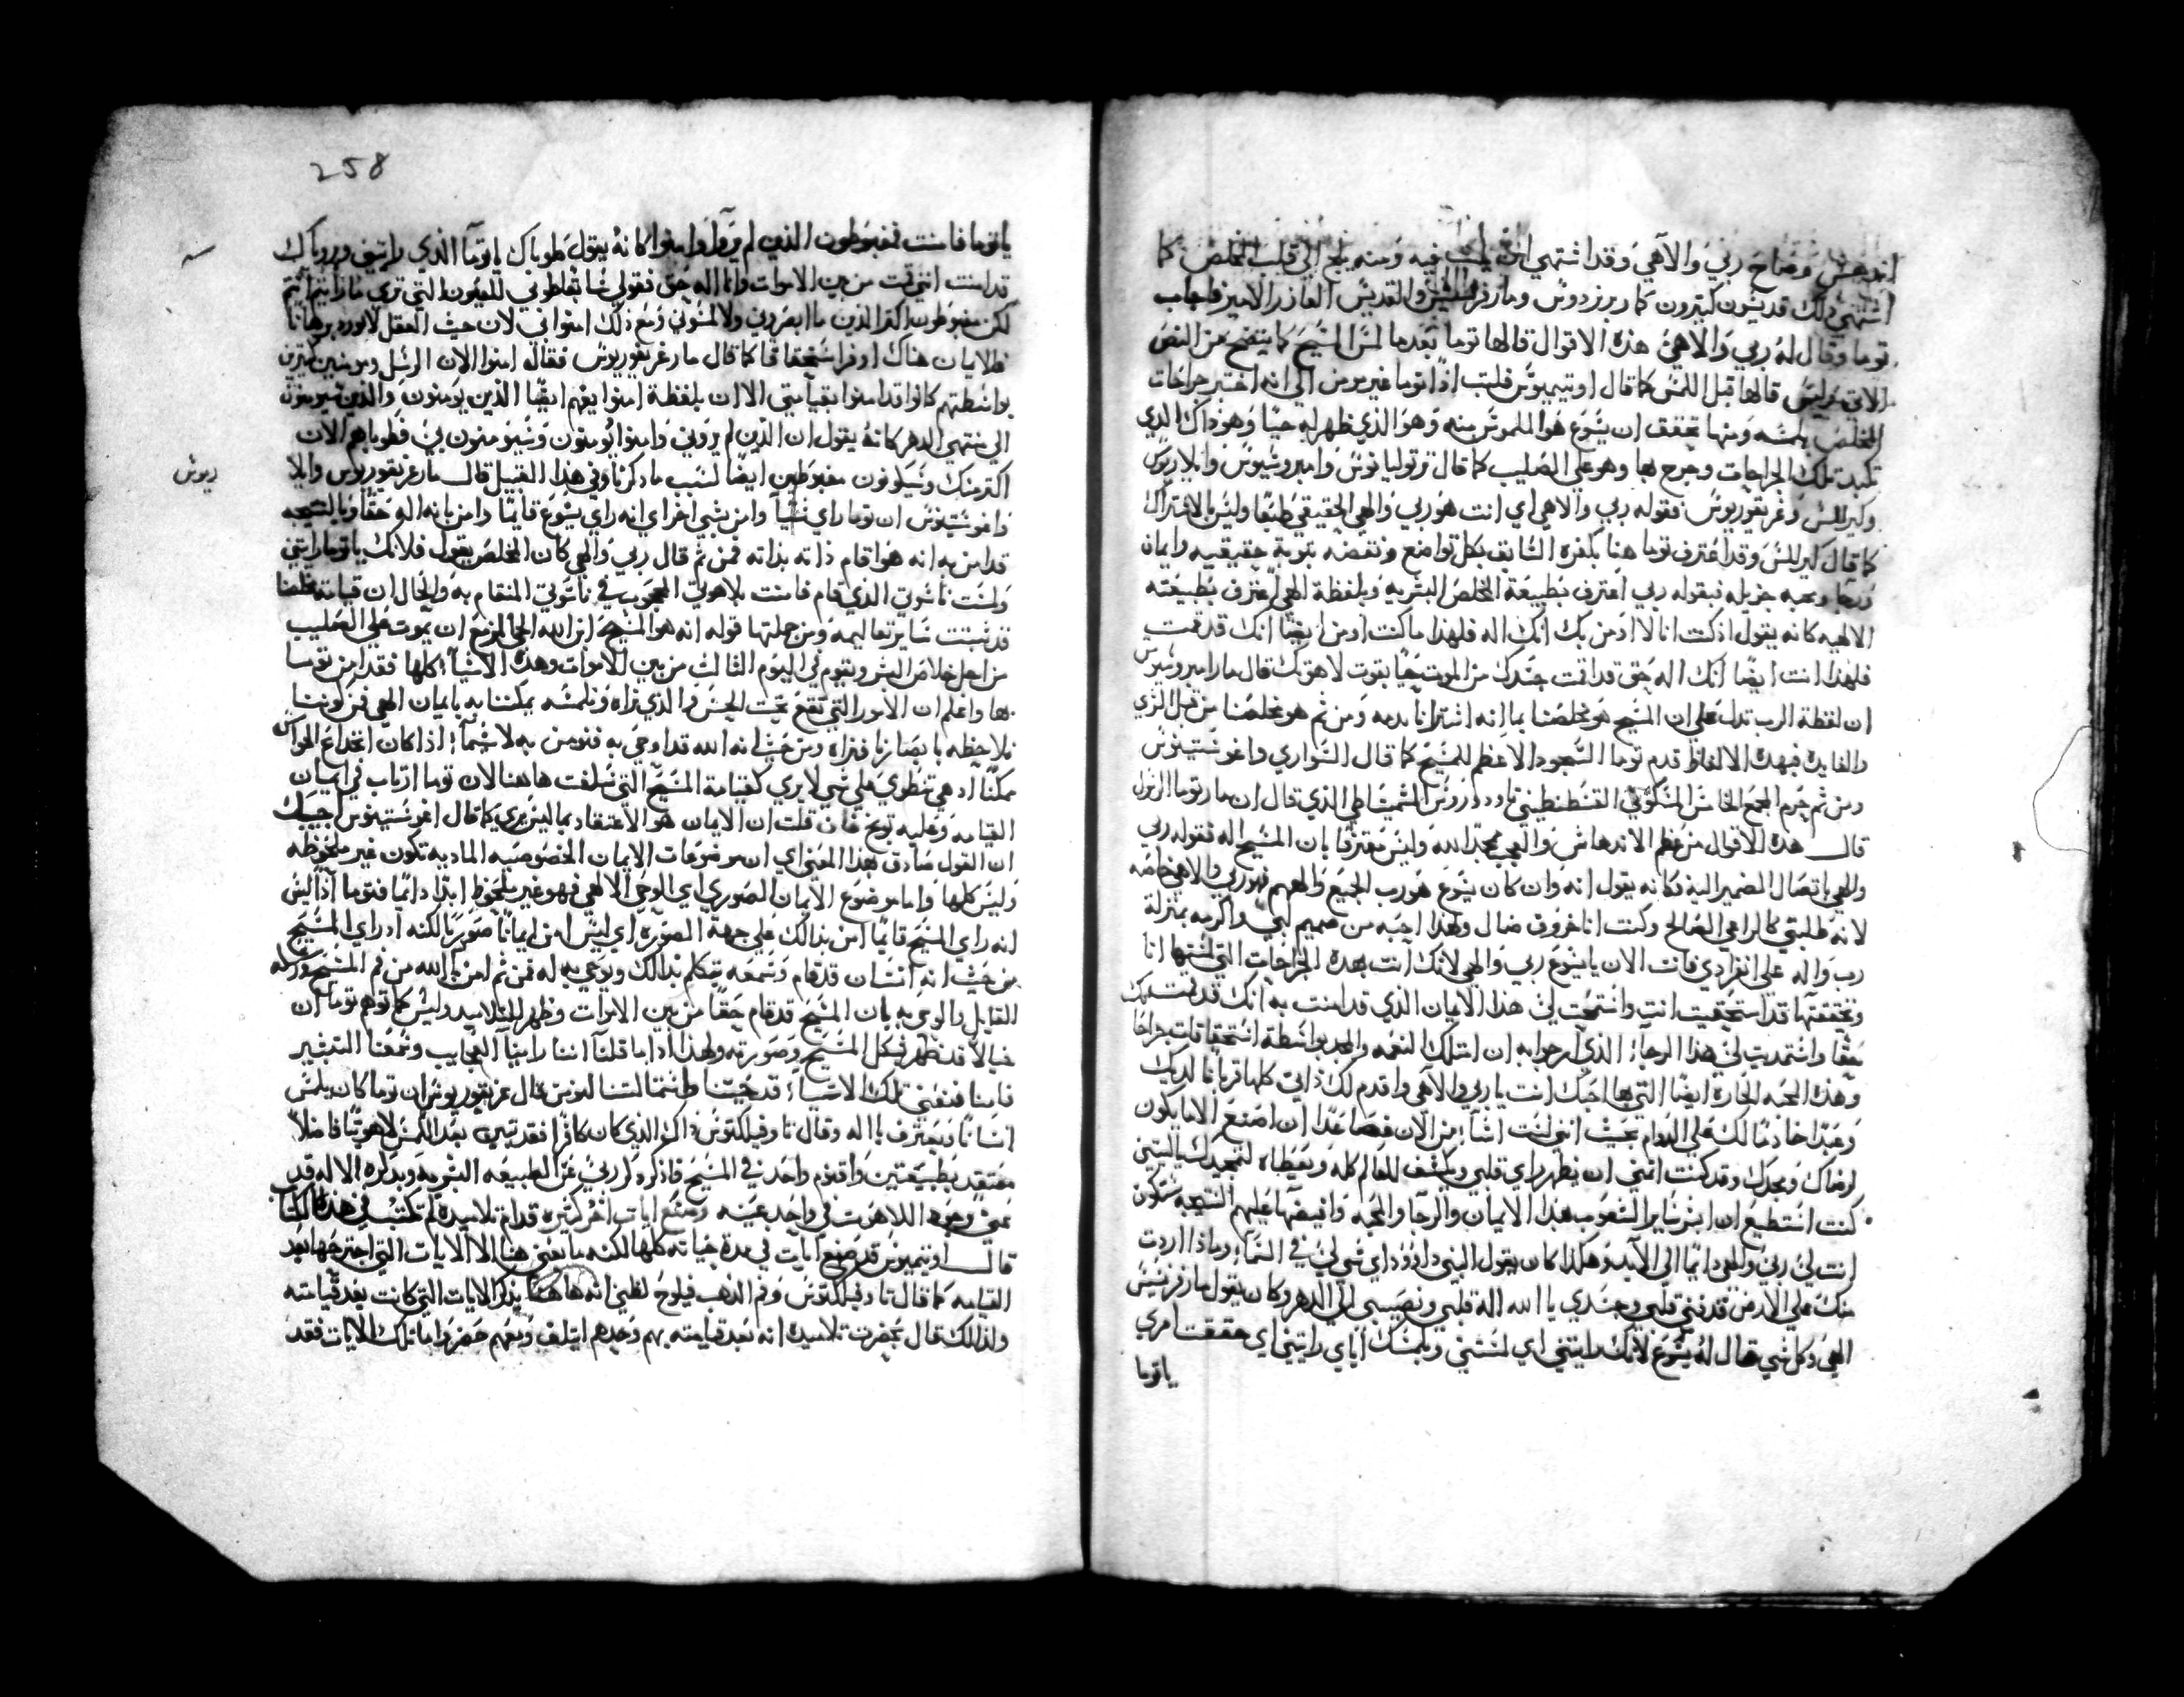 اندهش وصاح ربي والاهي وقد اشتهي ان يلبث فيه ومنه يلج الي قلب المخلص كما
اشتهي ذلك قديسون كثيرون كمار برنردوس ومار فرنسيس والقديس العازر الامير فاجاب
توما وقال له ربي والاهي هذه الاقوال قالها توما بعدما لمس المسيح كما يتضح من النص
الاتي وليس قالها قبل اللمس كما قال اوتيميوس فلبث اذا توما غير مومن الي انه اختبر جراحات
المخلص بلمسه ومنها تحقق ان يسوع هو الملموس منه وهو الذي ظهر له حيا وهو ذاك الذي
تكبد تلك الجراحات وجرح بها وهو علي الصليب كما قال ترتوليانوس وامبروسيوس وايلاريوس
وكيرللس وغريغوريوس فقوله ربي والاهي اي انت هو ربي والهي الحقيقي طبعا وليس بالاشتراك
كما قال كيرللس وقد اعترف توما هنا بكفره السابق بكل تواضع ونقضه بتوبة حقيقيه وايمان
ورجا ومحبه جزيله فبقوله ربي اعترف بطبيعة المخلص البشريه وبلفظة الهي اعترف بطبيعته
الالهيه كانه يقول اذ كنت انا لا اومن بك انك اله فلهذا ما كنت اومن ايضا انك قد قمت
فلهذا امنت ايضا انك اله حق قد اقمت جسدك من الموت حيا بقوت لاهوتك قال مار امبروسيوس
ان لفظة الرب تدل علي ان المسيح هو مخلصنا بما انه اشترانا بدمه ومن ثم هو مخلصنا من قبل الزي
والفايده فبهذه الالفاظ قدم توما السجود الاعظم للمسيح كما قال السواري واغوستينوس
ومن ثم حرم المجمع الخامس المسكوني القسطنطيني تاودوروس المشمشاطي الذي قال ان مار توما الرسول
قال هذه الاقوال من عظم الاندهاش والعجب مجدا لله وليس معترفا بان المسيح اله فقوله ربي
والهي باتصال الضمير اليه فكانه يقول انه وان كان يسوع هو رب الجميع والههم فهو ربي والاهي خاصه
لانه طلبني كالراعي الصالح وكنت انا خروف ضال ولهذا احبه من صميم لبي واكرمه بمنزلة
رب واله علي انفرادي فانت الان يا يسوع ربي والهي لانك انت بهذه الجراحات التي لمستها انا
وتحققتها قد استحقيت انت واستمحت لي هذا الايمان الذي قد امنت به انك قد قمت
حقا واستمديت لي هذا الرجاء الذي ارجوا به ان امتلك النعمه والمجد بواسطة استحقاقات جراحا
وهذه المحبه الحاره ايضا التي بها احبك انت يا ربي والاهي واقدم لك ذاتي كلها قربانا لديك
وعبدا خادما لك علي الدوام بحيث انني لست اشاء من الان فصاعدا ان اصنع الا ما يكون
لرضاك ومجدك وقد كنت اتمني ان يظهر راي قلبي ويكشف للعالم كله ويعطاه لتمجيدك يا ليتني
كنت استطيع ان ابشر ساير الشعوب بهذا الايمان والرجا والمحبه وافيضها عليهم النتيجه ستكون
انت لي ربي والهي دايما الي الابد وهكذا كان يقول النبي داوود اي شي لي في السماء وماذا اردت
منك علي الارض قد فني قلبي وجسدي يا الله اله قلبي ونصيبي الي الدهر وكان يقول مار فرنسيس
الهي وكل شي قال له يسوع لانك رايتني اي لمستني وبلمسك اياي رايتني اي حققت امري
يا توما
258
يا توما فامنت فمغبوطون الذين لم يروا وامنوا كانه يقول طوباك يا توما الذي رايتني وروياك
قد امنت انني قمت من بين الاموات وانا اله حق فقولي بما تغلطوني للعيون التي تري ما رايتم انتم
لكن مغبوطون اكثر الذين ما ابصروني ولا لمسوني ومع ذلك امنوا بي لان حيث العقل لا يورد برهانا
فللايمان هناك اوفر استحقاقا كما قال مار غريغوريوس فقاله امنوا الان الرسل ومومنين كثيرين
بواسطتهم كانوا قد امنوا بقيامتي الا ان بلفظة امنوا يفهم ايضا الذين يومنون والذين سيومنون
الي منتهي الدهر كانه يقول ان الذين لم يروني وامنوا يومنون وسيومنون بي فطوباهم الان
اكثر منك وسيكونون مغبوطين ايضا لسبب ما ذكرناه وفي هذا القبيل قال مار غريغوريوس وايلا
ريوس
واغوستينوس ان توما راي شيا وامن بشي اخر اي انه راي يسوع قايما وامن بانه اله حقا وبالنتيجه
قد امن به انه هو اقام ذاته بذاته فمن ثم قال ربي والهي كان المخلص يقول فلانك يا توما رايتني
ولمست ناسوتي الذي قام فامنت بلاهوتي المحجوب في ناسوتي المنقام به والحال ان قيامة مخلصنا
قد ثبتت ساير تعاليمه ومن جملتها قوله انه هو المسيح ابن الله الحي المزمع ان يموت علي الصليب
من اجل خلاص البشر ويقوم في اليوم الثالث من بين الاموات وهذه الاشياء كلها فقد امن توما
بها واعلم ان الامور التي تقع تحت الحس فما الذي نراه ونلمسه يمكننا به بايمان الهي فمن كوننا
نلاحظه بابصارنا فنراه ومن حيث انه الله قد اوحي به فنومن به لا سيما اذا كان انخداع الحواس
ممكنا اذ هي تنطوي علي شي لا يري كقيامة المسيح التي سلفت هاهنا لان توما ارتاب في ايمان
القيامه وعليه توبخ فان قلت ان الايمان هو الاعتقاد بما ليس يري كما قال اغوستينوس اجيبك
ان القول صادق بهذا المعني اي ان موضوعات الايمان الخصوصيه الماديه تكون غير ملحوظه
وليس كلها واما موضوع الايمان الصوري اي الوحي الالهي فهو غير ملحوظ ابدا دايما فتوما اذا ليس
انه راي المسيح قايما امن بذالك علي جهة الصوره اي ليس امن ايمانا صوريا لكنه اذ راي المسيح
من حيث انه انسان قد قام وسمعه يتكلم بذالك ويوحي به له فمن ثم امن بالله من فم المسيح ورسله
القايل والموحي به بان المسيح قد قام حقا من بين الاموات وظهر للتلاميذ وليس كما توهم توما ان
خيالا قد ظهر بشكل المسيح وصورته ولهذا اذا ما قلنا اننا راينا العجايب وسمعنا التبشير
فامنا فنعني تلك الاشياء قد حثتنا واستمالتنا لنومن قال غريغوريوس ان توما كان يلمس
انسانا ويعترف باله وقال تاوفيلكتوس ذاك الذي كان كافرا فقد تبين بعد اللمس لاهوتيا فاضلا
معتقدا بطبيعتين واقنوم واحد في المسيح فاذكر ذكر ربي عن الطبيعه البشريه وبذكره الاله قد
عني وجود اللاهوت في واحد بعينه وصنع ايات اخر كثيره قدام تلاميذه لم تكتب في هذا الكتاب
قال اوتيميوس قد صنع ايات في مدة حياته كلها لكنه ما يعني هنا الا الايات التي اجترحها بعد
القيامه كما قال تاوفيلكتوس وفم الذهب فيلوح لظني انه هاهنا يذكر الايات التي كانت بعد قيامته
ولذالك قال بحضرت تلاميذه انه بعد قيامته بهم وحدهم ايتلف ومعهم حضر واما تلك الايات فقد